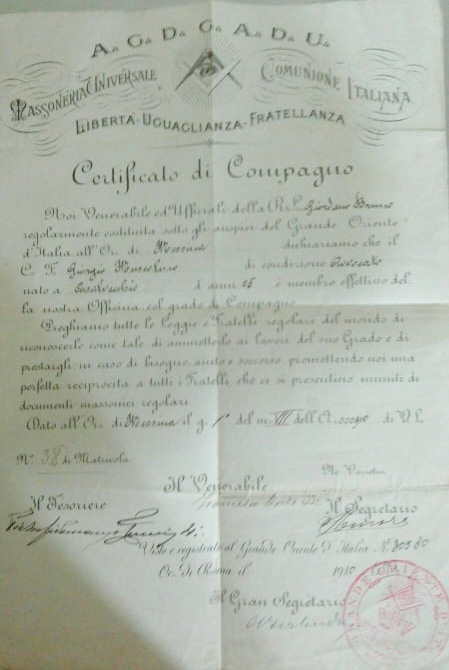 A. G. D. G. A. D. U.
MASSONERIA UNIVERSALE COMUNIONE ITALIANA
LIBERTÀ-UGUAGLIANZA-FRATELLANZA
Certificato di Compagno
Noi Venerabile ed Ufficiali della R. L. Giordano Bruno
regolarmente costituita sotto gli auspici del Grande Oriente
d'Italia all'Or. di Messina dichiariamo che il
C. F. Giorgio di condizione
nato a d'anni 25 è membro effettivo del
la nostra Officina col grado di Compagno
Preghiamo tutte le Loggie e Fratelli regolari del mondo di
riconoscerlo come tale, di ammetterlo ai lavori del suo Grado e di
prestargli, in caso di bisogno, aiuto e soccorso, promettendo noi una
perfetta reciprocità a tutti i Fratelli che ci si presentino muniti di
documenti massonici regolari.
Dato all'Or. di Messina il g. 1° del m. VII dell'A. di V. L.
N.° 38 di Matricola
Ne Varietur
Il Venerabile
Il Tesoriere Il Segretario
Visto e registrato al Grande Oriente d'Italia N.°
Or. di Roma il 1910
Il Gran Segretario
GRANDE ORIENTE D'